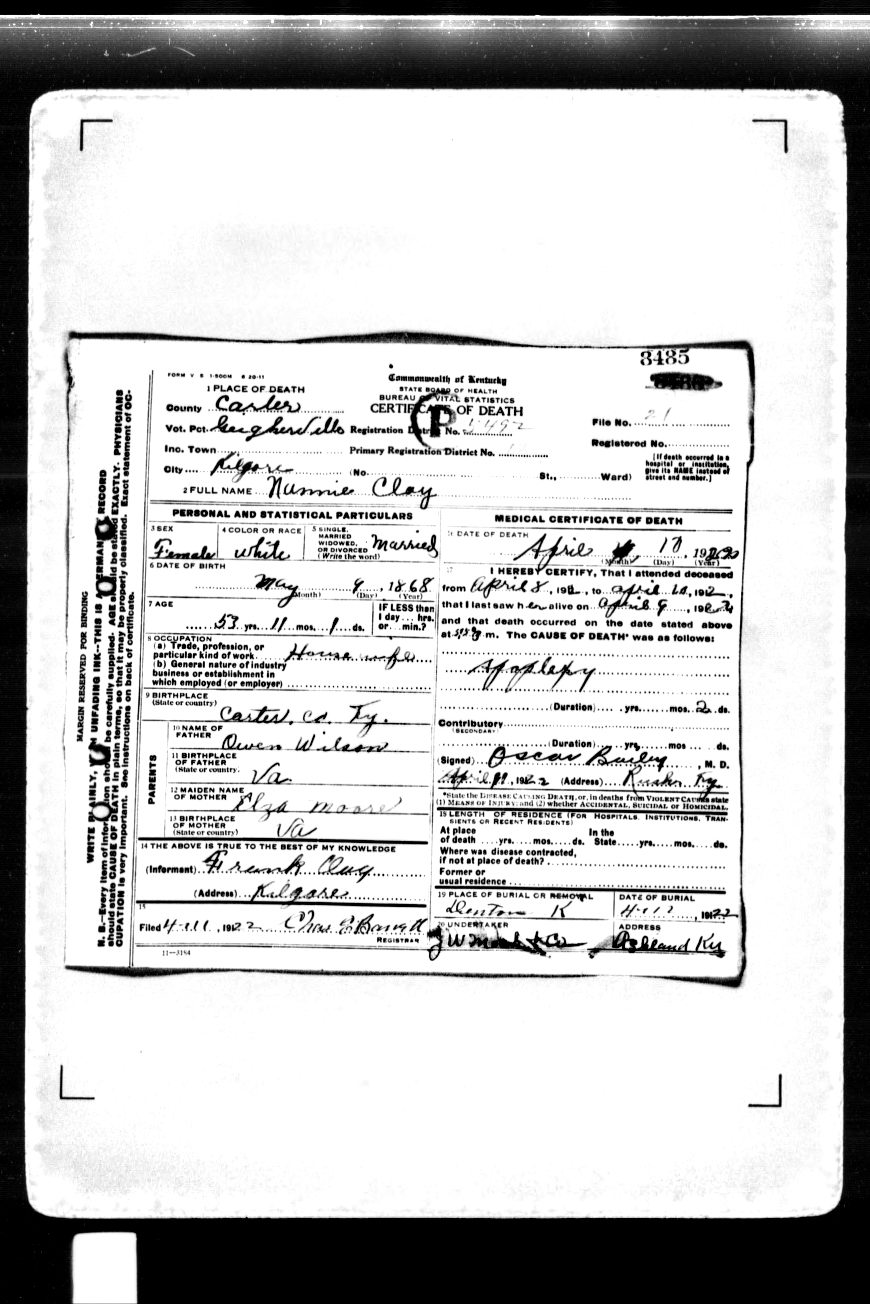 3485
FORM V S 1-500M 6 20-11
Commonwealth of Kentucky
STATE BOARD OF HEALTH
BUREAU OF VITAL STATISTICS
CERTIFICATE OF DEATH
P
1 PLACE OF DEATH
County Carter
Vot. Pct. Registration District No. 5492
File No. 21
Inc. Town Primary Registration District No.
Registered No.
City Kilgore (No. St., Ward)
[If death occurred in a
hospital or institution,
give its NAME instead of
street and number.]
2 FULL NAME Nannie Clay
PERSONAL AND STATISTICAL PARTICULARS
3 SEX
Female
4 COLOR OR RACE
White
5 SINGLE,
MARRIED
WIDOWED,
OR DIVORCED
(Write the word)
Married
6 DATE OF BIRTH
May 9, 1868
(Month) (Day) (Year)
7 AGE
53 yrs. 11 mos. 1 ds.
IF LESS than
1 day... hrs.
or... min.?
8 OCCUPATION
(a) Trade, profession, or
particular kind of work House wife
(b) General nature of industry
business or establishment in
which employed (or employer)
9 BIRTHPLACE
(State or country)
Carter, Co. Ky.
PARENTS
10 NAME OF
FATHER
Owen Wilson
11 BIRTHPLACE
OF FATHER
(State or country.
Va
12 MAIDEN NAME
OF MOTHER Elza Moore
13 BIRTHPLACE
OF MOTHER
(State or country)
Va
14 THE ABOVE IS TRUE TO THE BEST OF MY KNOWLEDGE
(Informant) Frank Clay
(Address) Kilgore
15
Filed 4-11, 1922
REGISTRAR
11-3184
MEDICAL CERTIFICATE OF DEATH
DATE OF DEATH
April 10, 19
(Month) (Day) (Year)
17 I HEREBY CERTIFY, That I attended deceased
from April 8, 191, to April 10, 191,
that I last saw her alive on April 9, 19
and that death occurred on the date stated above
at m. The CAUSE OF DEATH* was as follows:
Apoplexy
(Duration) yrs. mos. 2 ds.
Contributory
(SECONDARY)
(Duration) yrs. mos. ds.
(Signed) Oscar, M. D.
April, 1922 (Address) Rush Ky
*State the DISEASE CAUSING DEATH, or, in deaths from VIOLENT CAUSES state
(1) MEANS OF INJURY; and (2) whether ACCIDENTAL, SUICIDAL or HOMICIDAL.
18 LENGTH OF RESIDENCE (FOR HOSPITALS, INSTITUTIONS, TRAN-
SIENTS OR RECENT RESIDENTS)
At place In the
of death yrs. mos. ds. State yrs. mos. ds.
Where was disease contracted,
if not at place of death?
Former or
usual residence
19 PLACE OF BURIAL OR REMOVAL
Denton K
DATE OF BURIAL
, 1922
20 UNDERTAKER
ADDRESS
Ashland Ky
MARGIN RESERVED FOR BINDING
WRITE PLAINLY, WITH UNFADING INK--THIS IS A PERMANENT RECORD
N. B.--Every item of information should be carefully supplied. AGE should be stated EXACTLY. PHYSICIANS
should state CAUSE OF DEATH in plain terms, so that it may be properly classified. Exact statement of OC-
CUPATION is very important. See instructions on back of certificate.